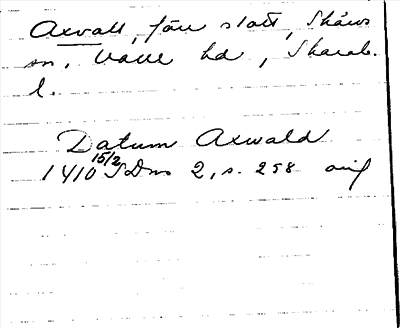 Axvall, förr slott, Skärvs
sn, Valle hd, Skarab.
l.
Datum Axwald
1410 15/2 SDns 2, s. 298 orig